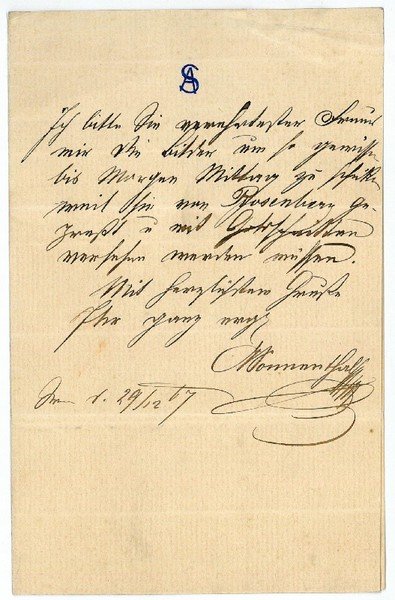 AS
Ich bitte Sie verehrtester Freund
mir die Bilder um so gewisser
bis Morgen Mittag zu schicken
weil sie von Rosenberg ge-
preßt u mit Goldschnitten
versehen werden müssen.
Mit herzlichstem Gruße
Ihr ganz erg
Sonnenthal
d. 29/12 67